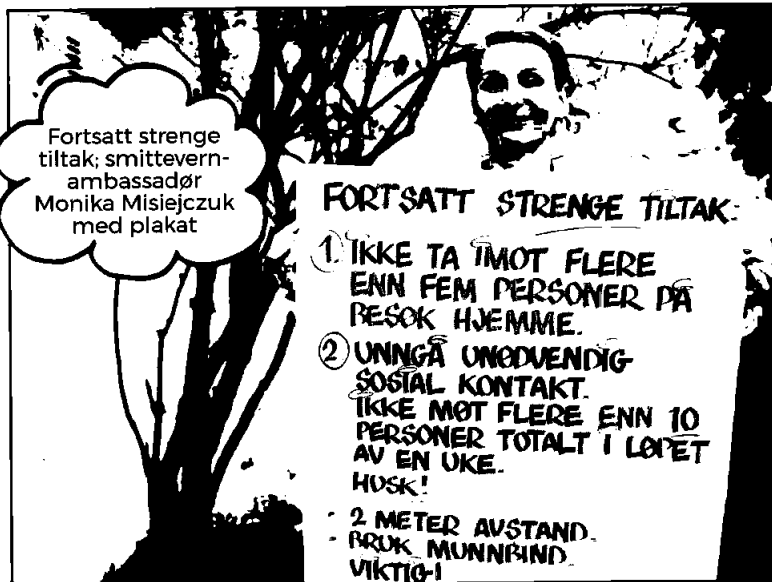 Fortsatt strenge
tiltak; smittevern-
ambassadør
Monika Misiejczuk
med plakat
FORTSATT STRENGE TILTAK:
1. IKKE TA IMOT FLERE
ENN FEM PERSONER PÅ
BESØK HJEMME.
2 UNNGÅ UNØDVENDIG
SOSIAL KONTAKT.
IKKE MØT FLERE ENN 10
PERSONER TOTALT I LØPET
AV EN UKE.
HUSK!
- 2 METER AVSTAND.
- BRUK MUNNBIND
VIKTIG!